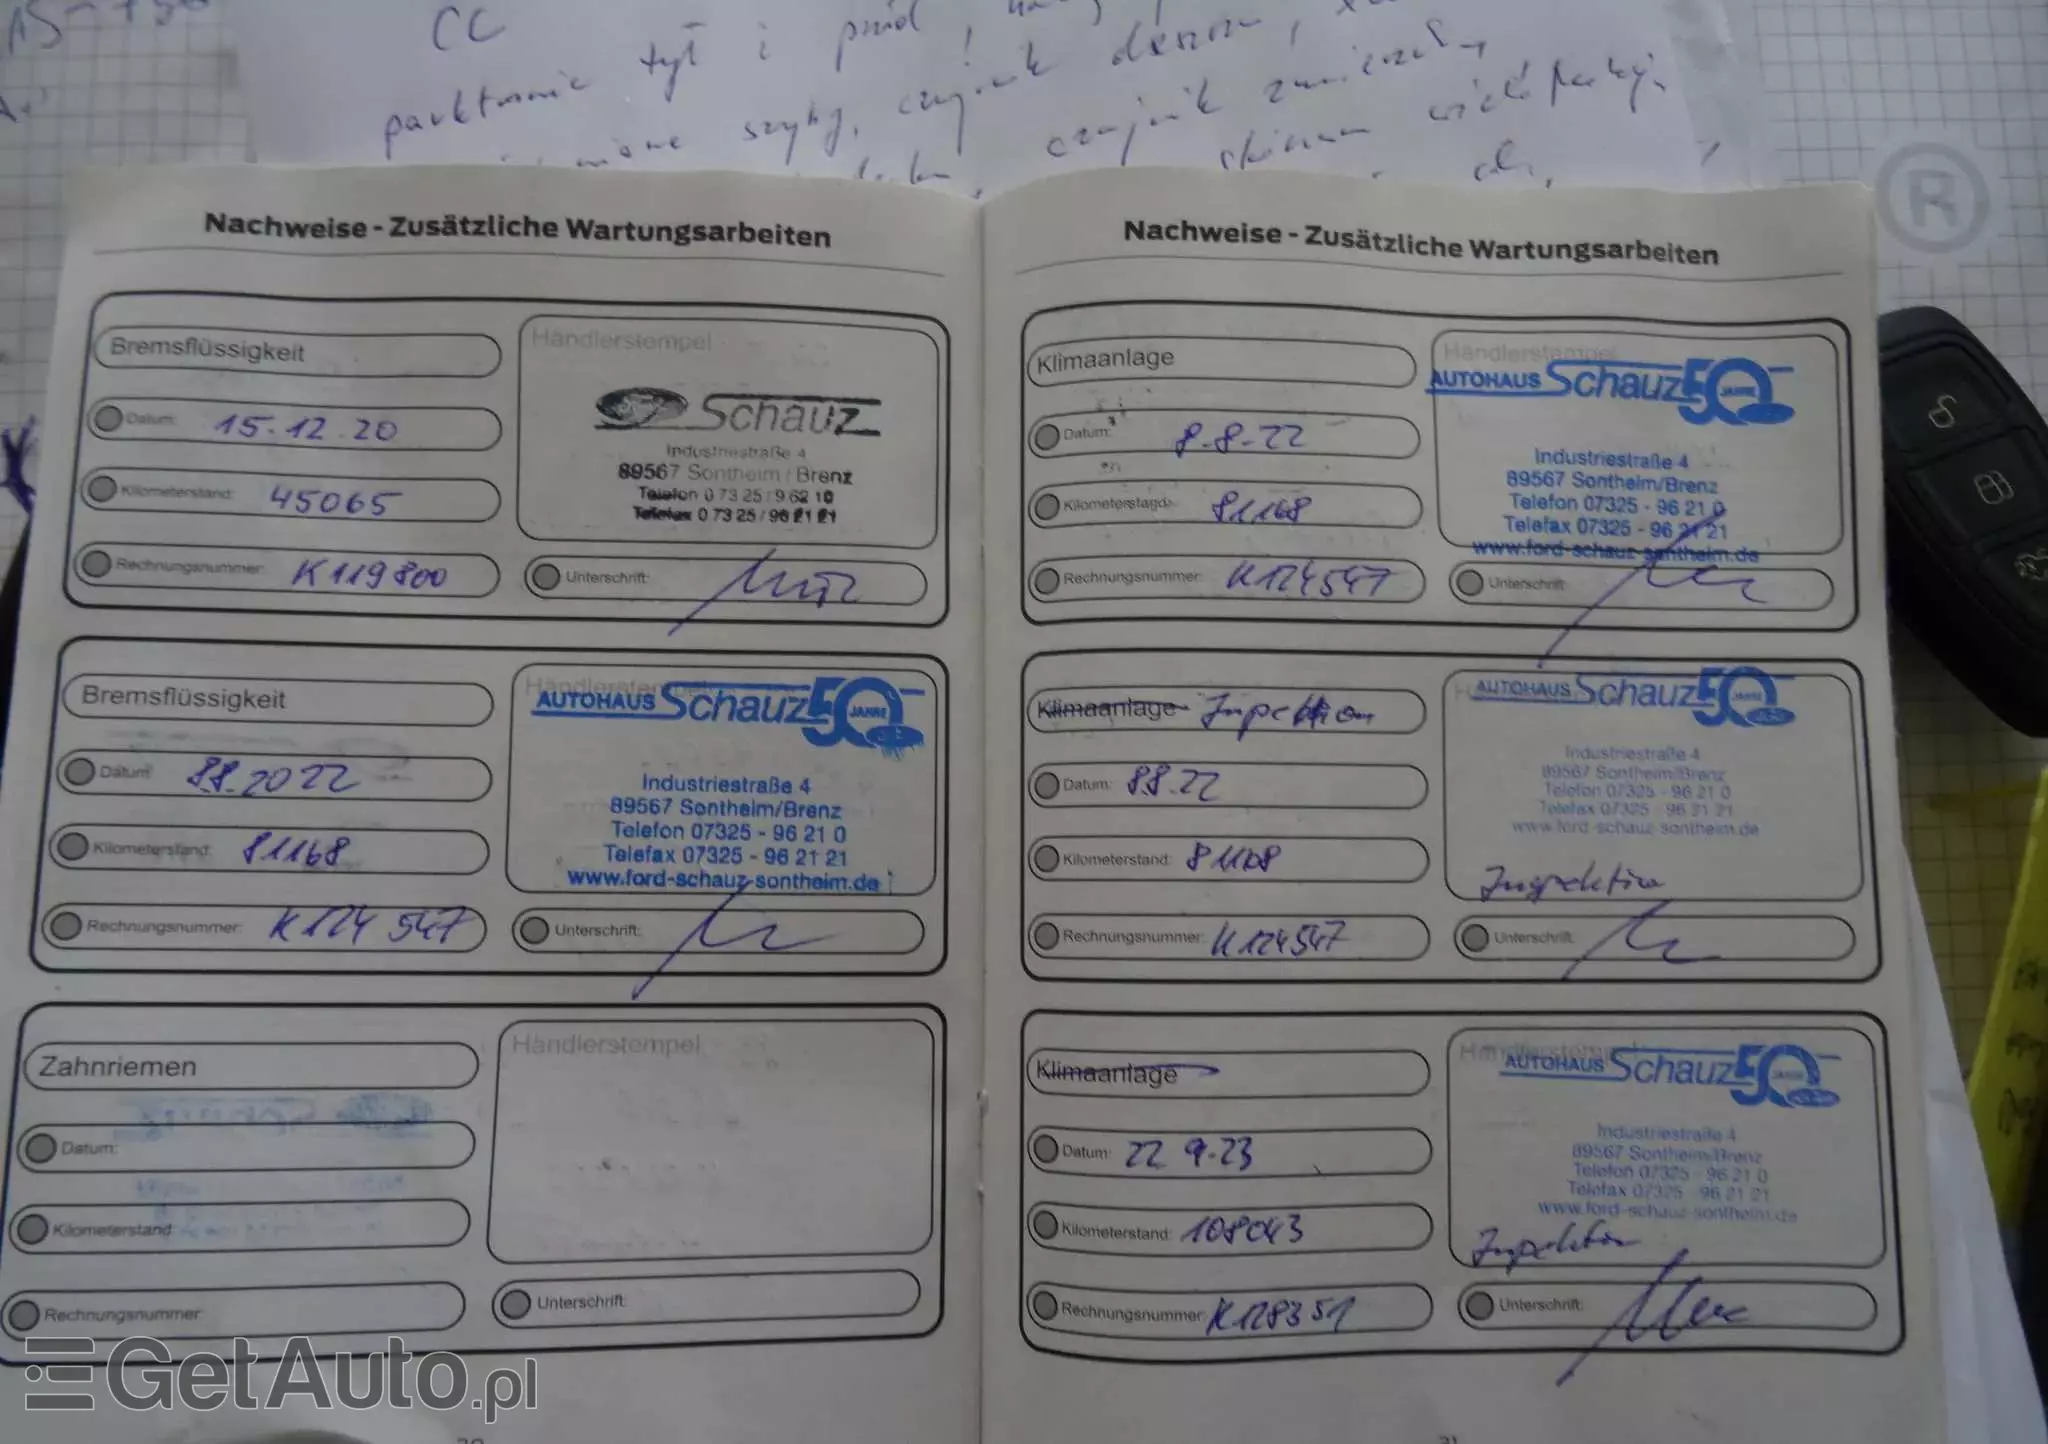 CC
parktronic tył i przód
szyby, czujnik deszczu,
czujnik zmierzchu,
Nachweise - Zusätzliche Wartungsarbeiten
Bremsflüssigkeit
Datum: 15.12.20
Kilometerstand: 45065
Rechnungsnummer: K119800
Händlerstempel
Schauz
Industriestraße 4
89567 Sontheim / Brenz
Telefon 0 73 25 / 9 62 10
Telefax 0 73 25 / 96 21 21
Unterschrift:
Bremsflüssigkeit
Datum: 8.8.2022
Kilometerstand: 81168
Rechnungsnummer: K124547
Händlerstempel
AUTOHAUS Schauz 50 JAHRE
Industriestraße 4
89567 Sontheim/Brenz
Telefon 07325 - 96 21 0
Telefax 07325 - 96 21 21
www.ford-schauz-sontheim.de
Unterschrift:
Zahnriemen
Datum:
Kilometerstand:
Rechnungsnummer:
Händlerstempel
Unterschrift:
Nachweise - Zusätzliche Wartungsarbeiten
Klimaanlage
Datum: 8.8.22
Kilometerstand: 81168
Rechnungsnummer: K124547
Händlerstempel
AUTOHAUS Schauz 50 JAHRE
Industriestraße 4
89567 Sontheim/Brenz
Telefon 07325 - 96 21 0
Telefax 07325 - 96 21 21
www.ford-schauz-sontheim.de
Unterschrift:
Klimaanlage Inspektion
Datum: 8.8.22
Kilometerstand: 81168
Rechnungsnummer: K124547
AUTOHAUS Schauz 50 JAHRE
Industriestraße 4
89567 Sontheim/Brenz
Telefon 07325 - 96 21 0
Telefax 07325 - 96 21 21
www.ford-schauz-sontheim.de
Inspektion
Unterschrift:
Klimaanlage
Datum: 22.9.23
Kilometerstand: 108043
Rechnungsnummer: K128351
Händlerstempel
AUTOHAUS Schauz 50 JAHRE
Industriestraße 4
89567 Sontheim/Brenz
Telefon 07325 - 96 21 0
Telefax 07325 - 96 21 21
www.ford-schauz-sontheim.de
Inspektion
Unterschrift:
GetAuto.pl
®